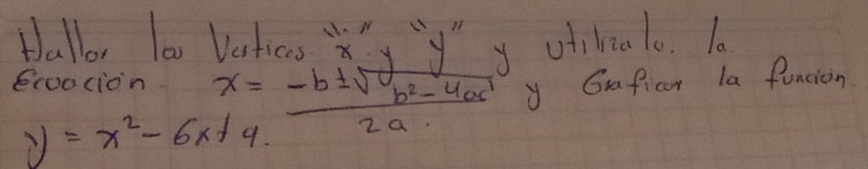 Hallar los Vertices "x" y "y" y utilizalo. la
Ecuación x = -b ± √b² - 4ac / 2a. y Graficar la función.
y = x² - 6x + 9.